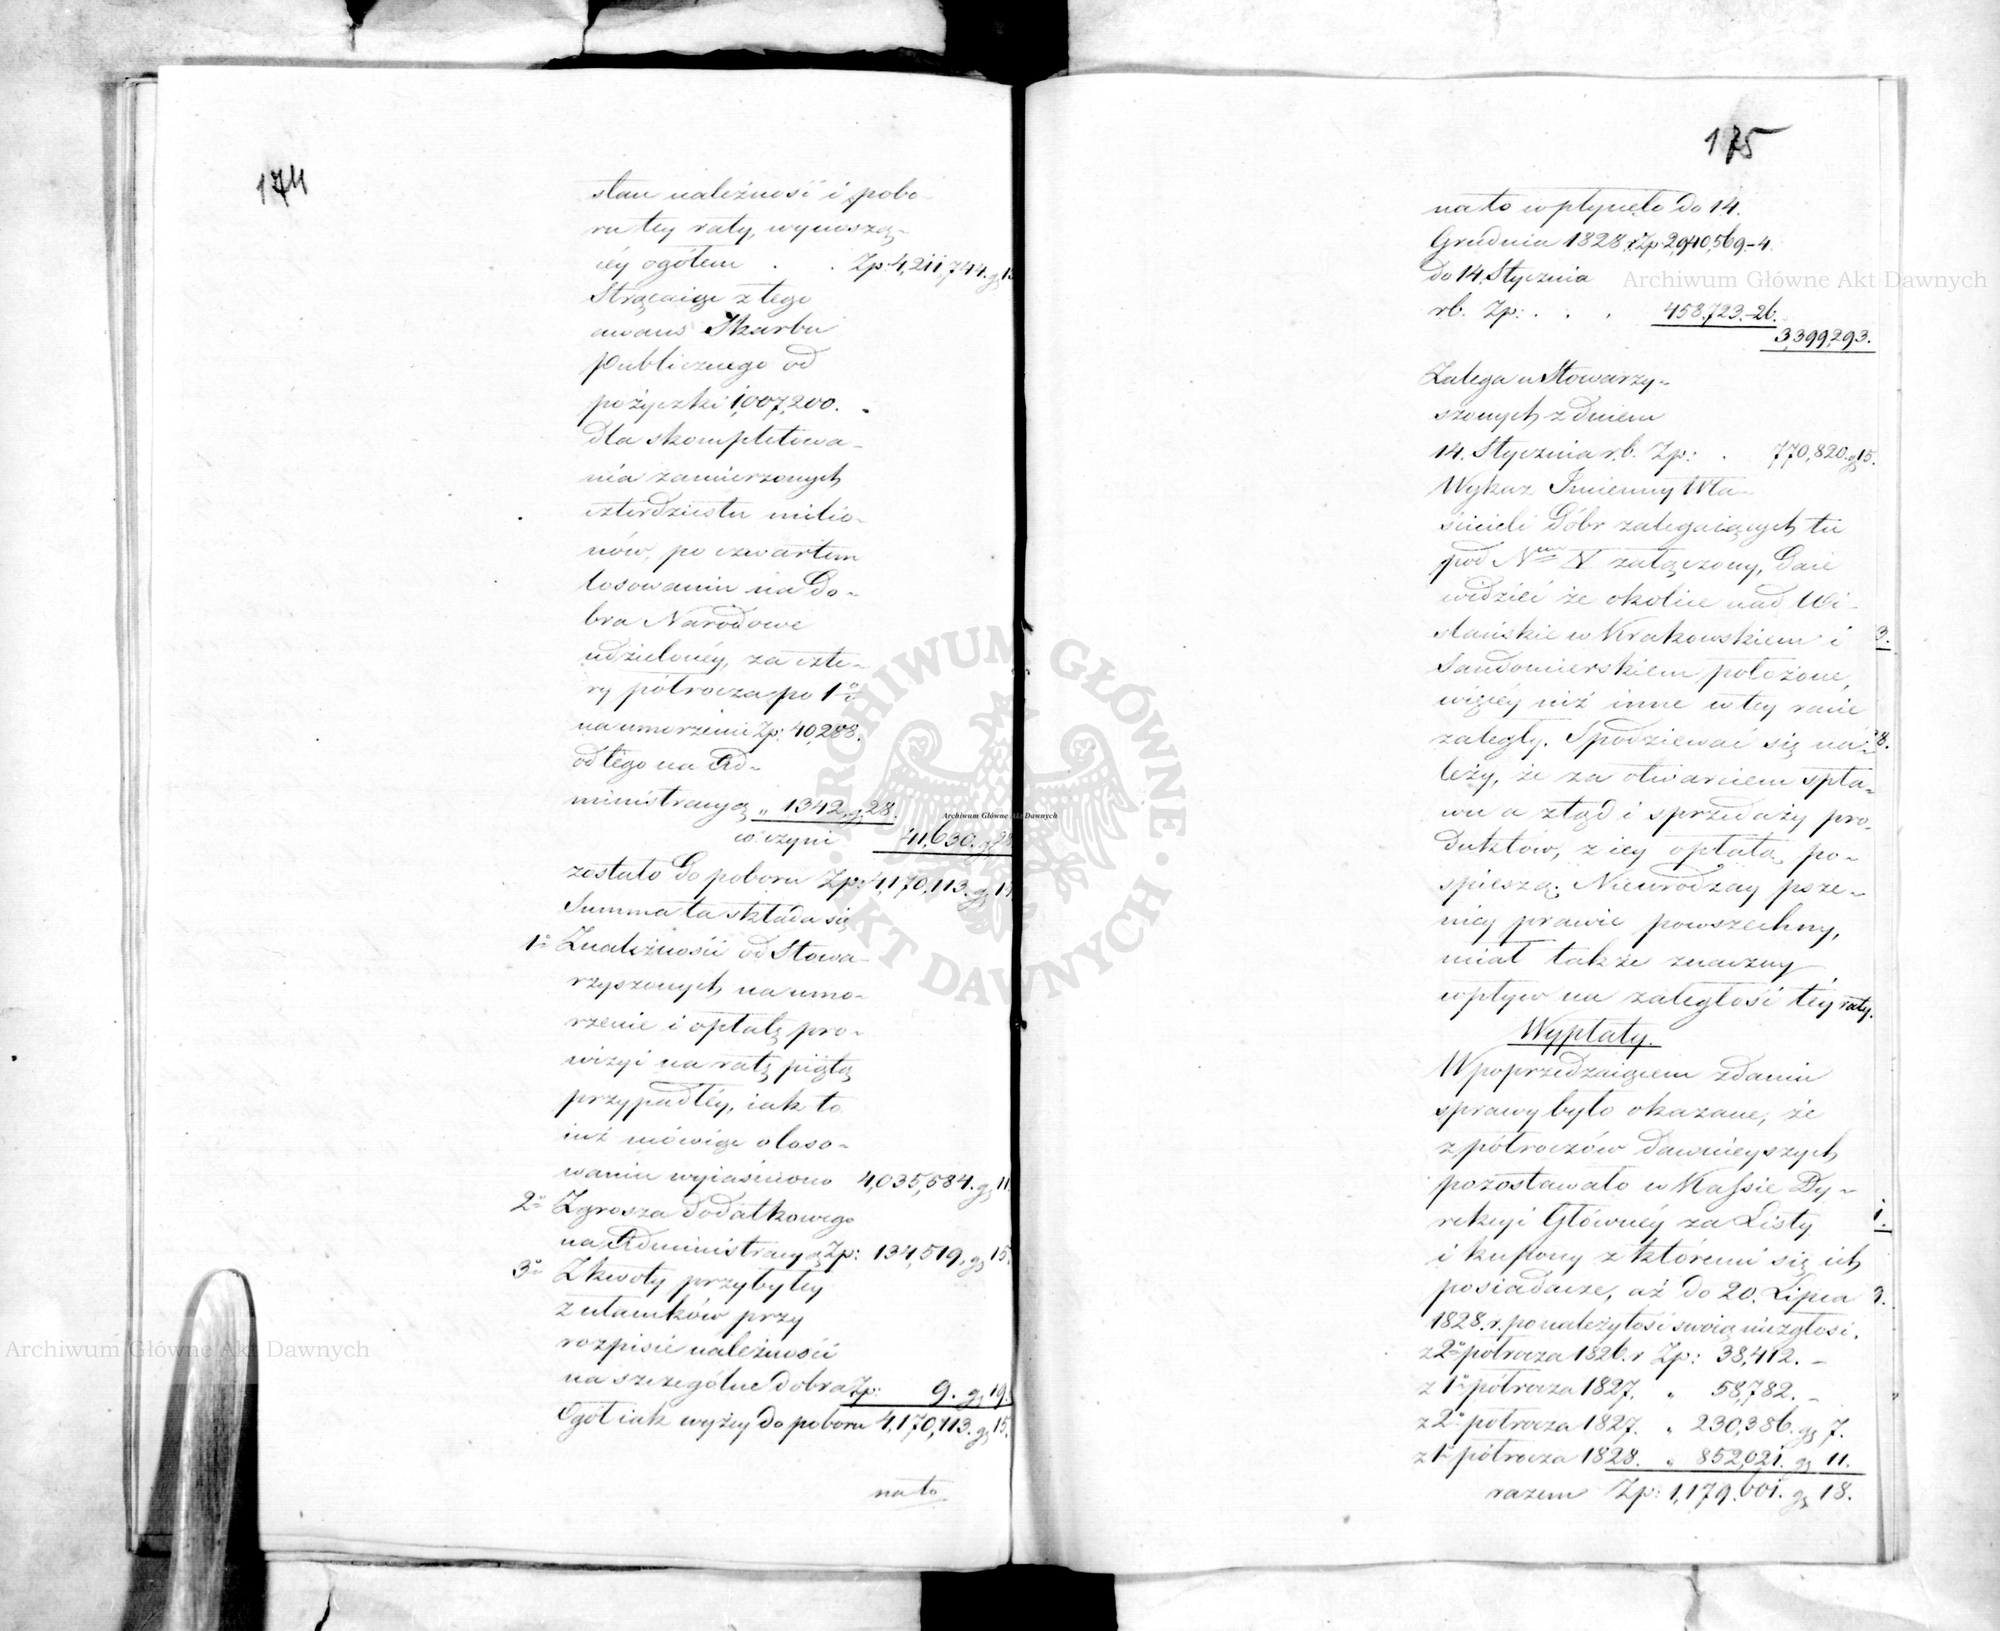 174
stanu należności i pobo-
ru tey raty, wynoszą-
cey ogółem . . Zp: 4,211,744. g
Strącaiąc z tego
awans Skarbu
Publicznego od
pożyczki 1,007,200.
dla skompletowa-
nia zamierzonych
czterdziestu milio-
nów, po czwartem
losowaniu na Do-
bra Narodowe
udzieloney, za czte-
ry półrocza po 1%
na umorzenie Zp: 40,288.
od tego na Ad-
ministracyą " 1342. g 28.
co czyni 41,630. g 28
zostało do poboru Zp: 4,170,113. g
Summa ta składa się
1° Z należności od Stowa-
rzyszonych na umo-
rzenie i opłatę pro-
wizyi na ratę piątą
przypadłey, iak to
iuż mówiąc o loso-
waniu wyiaśniono 4,035,584. g 11.
2° Z grosza dodatkowego
na Administracyą Zp: 134,519. g 15.
3° Z kwoty przybyłey
z ułamków przy
rozpisie należności
na szczególne dobra Zp: 9. g 19.
Ogół iak wyżey do poboru 4,170,113. g 15.
na to
175
na to wpłynęło do 14.
Grudnia 1828 r. Zp 2,940,569.-4.
do 14. Stycznia
rb. Zp: . . . 458.723.-26.
3,399,293.
Zalega u Stowarzy-
szonych z dniem
14. Stycznia r.b. Zp: . 770,820. g 15.
Wykaz Imienny Wła-
ścicieli Dóbr zalegaiących tu
pod Nrem IV załączony, daie
widzieć że okolice nad Wi-
ślańskie w Krakowskiem i
Sandomierskiem położone,
więcey niż inne w tey racie
zaległy. Spodziewać się na-
leży, że za otwarciem spła-
wu a ztąd i sprzedaży pro-
duktów, z iey opłatą po-
spieszą. Nieurodzay psze-
nicy prawie powszechny,
miał także znaczny
wpływ na zaległość tey raty.
Wypłaty.
W poprzedzaiącem zdaniu
sprawy było okazane, że
z półroczów dawnieyszych
pozostawało w Kassie Dy-
rekcyi Główney za Listy
i kupony z któremi się ich
posiadacze, aż do 20. Lipca
1828. r. po należytość swoią niezgłosi.
z 2° półrocza 1826. r Zp: 38,412. -
z 1° półrocza 1827. " 58,782. -
z 2° półrocza 1827. " 230,386. g 7.
z 1° półrocza 1828. " 852,021. g 11.
razem Zp: 1,179.601. g 18.
3.
28.
1.
9.
Archiwum Główne Akt Dawnych
Archiwum Główne Akt Dawnych
Archiwum Główne Akt Dawnych
ARCHIWUM GŁÓWNE · AKT DAWNYCH ·